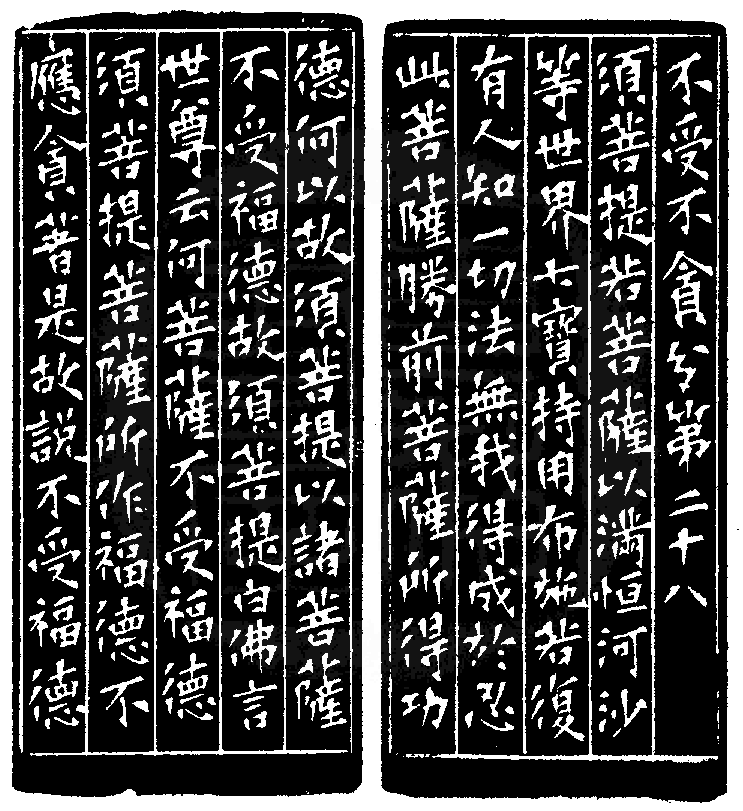 不受不貪分第二十八
須菩提若菩薩以滿恒河沙
等世界七寶持用布施若復
有人知一切法無我得成於忍
此菩薩勝前菩薩所得功
德何以故須菩提以諸菩薩
不受福德故須菩提白佛言
世尊云何菩薩不受福德
須菩提菩薩所作福德不
應貪著是故說不受福德